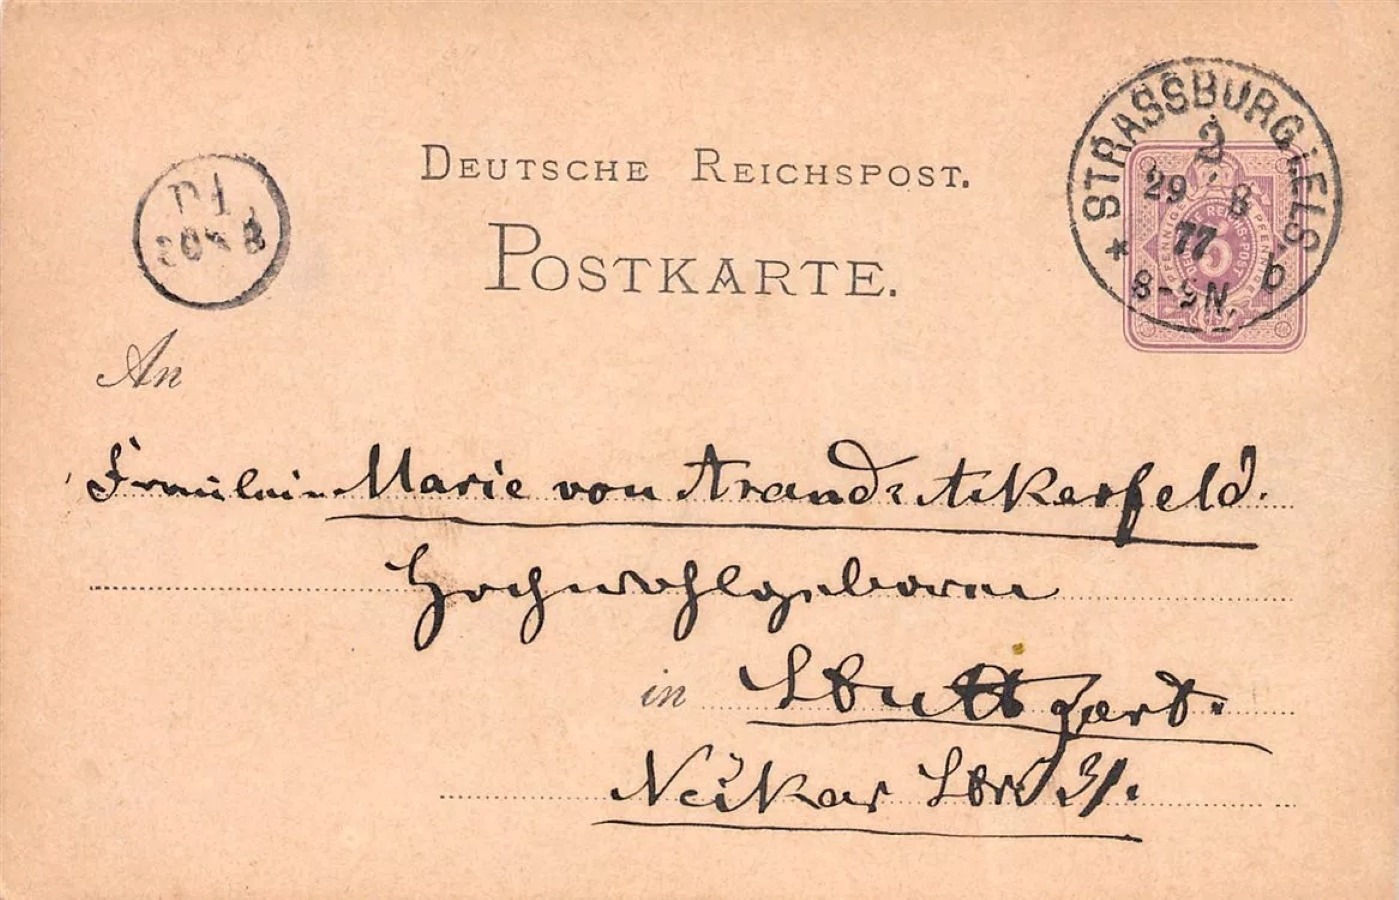 DEUTSCHE REICHSPOST.
POSTKARTE.
STRASSBURG i. ELS.
3
29 8
77
8-9N.
b
5
DEUTSCHE REICHS-POST
PFENNIG PFENNIG
An
Fräulein Marie von Arand-Ackerfeld.
Hochwohlgeboren
in Stuttgart.
Neckar Str 31.